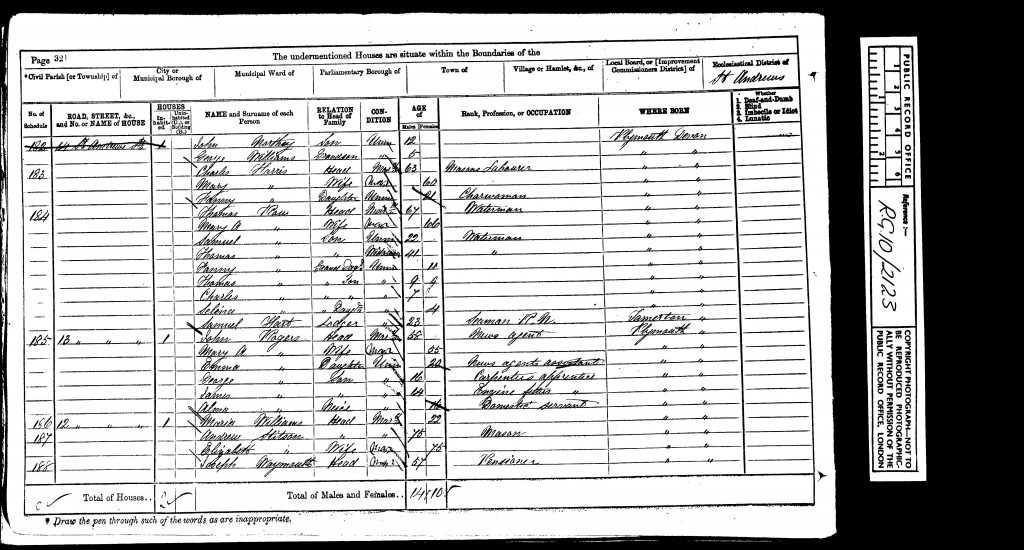 Page 321
The undermentioned Houses are situate within the Boundaries of the
*Civil Parish [or Township] of
City or Municipal Borough of
Municipal Ward of
Parliamentary Borough of
Town of
Village or Hamlet, &c., of
Local Board, or [Improvement Commissioners District] of
Ecclesiastical District of
St Andrews
No. of Schedule
ROAD, STREET, &c., and No. or NAME of HOUSE
HOUSES
Inhabited
Uninhabited (U.), or Building (B.)
NAME and Surname of each Person
RELATION to Head of Family
CONDITION
AGE of
Males Females
Rank, Profession, or OCCUPATION
WHERE BORN
Whether
1. Deaf-and-Dumb
2. Blind
3. Imbecile or Idiot
4. Lunatic
182 14 St Andrews St 1 John Son Unm 12 Plymouth Devon
George Williams Grandson 5 " "
183 Charles Harris Head Mar 63 Masons Labourer " "
Mary " Wife Mar 60 " "
Fanny " Daughter Unm 21 Charwoman " "
184 Thomas Head Mar 67 Waterman " "
Mary A " Wife Mar 66 " "
Samuel " Son Unm 22 Waterman " "
Thomas " " Widower 41 " " "
Fanny " Grand Dagr Unm 11 " "
Thomas " " Son " 9 9 " "
Charles " " " 7 " "
Selina " " Dagtr " 4 " "
Samuel Hart Lodger " 23 Seaman R.N. Tamerton "
185 13 " " " 1 John Rogers Head Mar 58 News agent Plymouth "
Mary A " Wife Mar 55 " "
Emma " Daughter Unm 20 News agents assistant " "
George " Son " 16 Carpenters apprentice " "
James " " " 14 Engine fitters " " "
" Niece " Domestic servant " "
186 12 " " " 1 Maria Williams Head Mar 22 " "
187 Andrew Stitson " " 75 Mason " "
Elizabeth " Wife Mar 75 " "
188 Joseph Waymouth Head Mar 57 Pensioner " "
Total of Houses.. 2
Total of Males and Females.. 14 10
* Draw the pen through such of the words as are inappropriate.
PUBLIC RECORD OFFICE
1 2 3 4 5 6
1 2
Reference :-
RG 10/2123
COPYRIGHT PHOTOGRAPH—NOT TO
BE REPRODUCED PHOTOGRAPHIC-
ALLY WITHOUT PERMISSION OF THE
PUBLIC RECORD OFFICE, LONDON